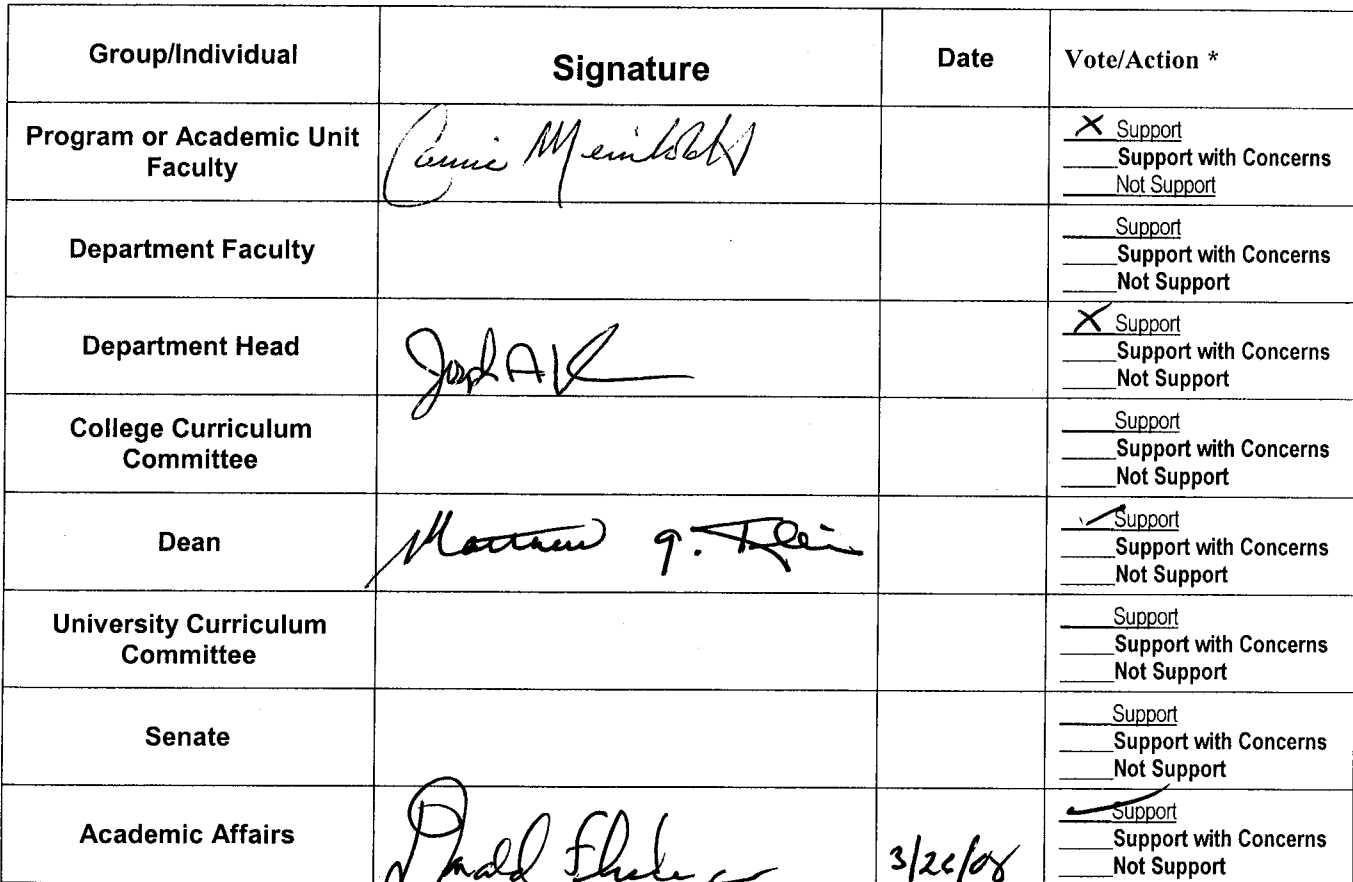 Group/Individual Signature Date Vote/Action *
Program or Academic Unit
Faculty
Connie
X Support
____Support with Concerns
____Not Support
Department Faculty
____Support
____Support with Concerns
____Not Support
Department Head
Joseph A
X Support
____Support with Concerns
____Not Support
College Curriculum
Committee
____Support
____Support with Concerns
____Not Support
Dean
Matthew
✓Support
____Support with Concerns
____Not Support
University Curriculum
Committee
____Support
____Support with Concerns
____Not Support
Senate
____Support
____Support with Concerns
____Not Support
Academic Affairs
Donald
✓Support
____Support with Concerns
____Not Support